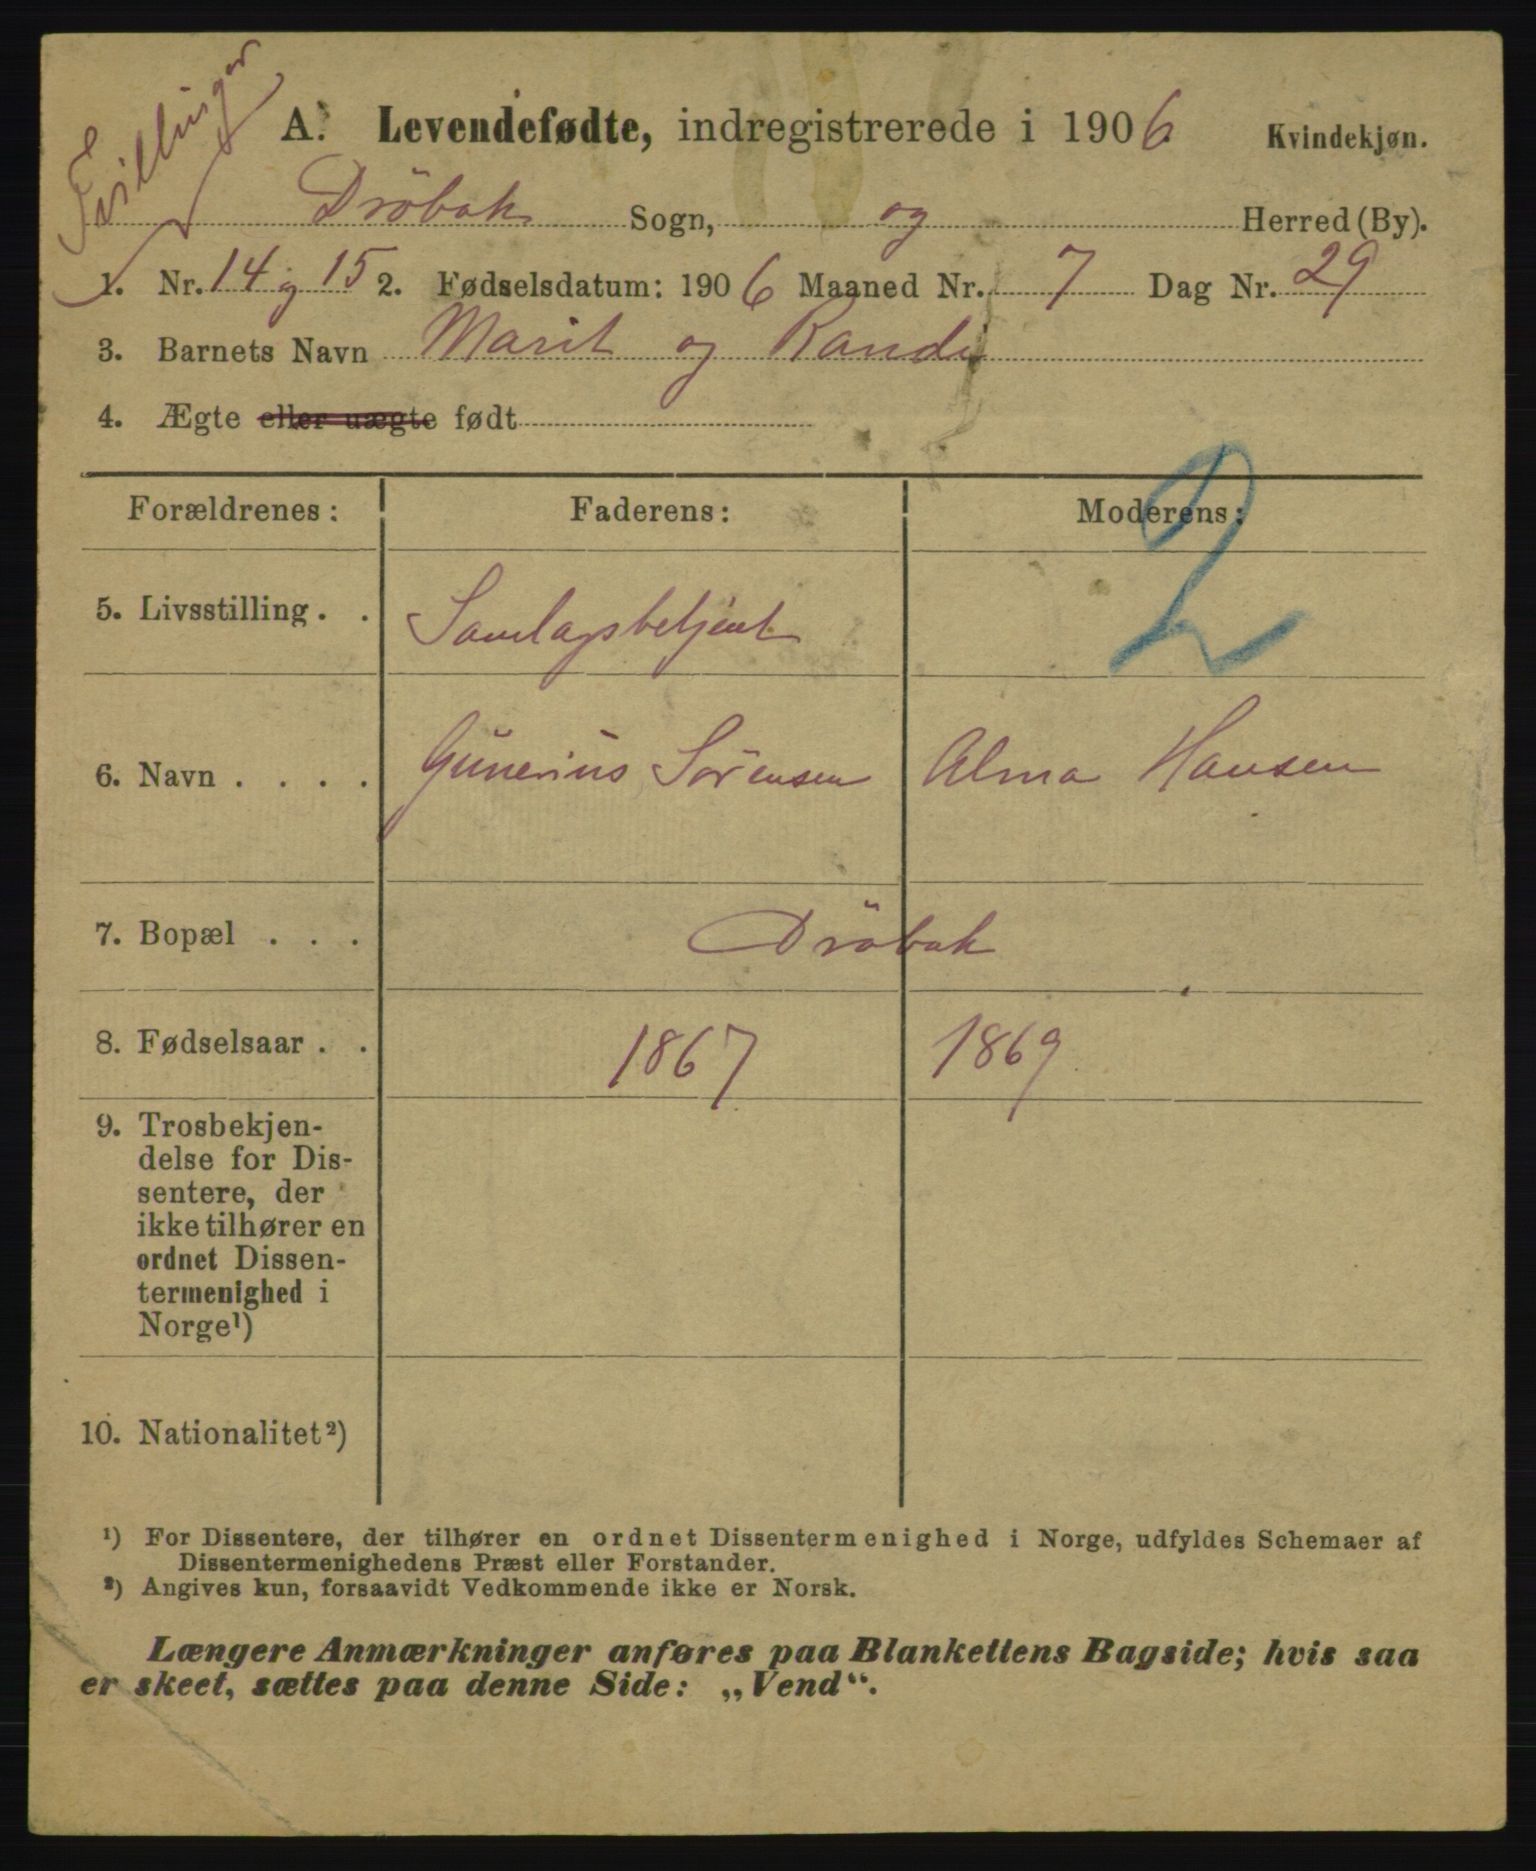 Tvillinger
A. Levendefødte, indregistrerede i 1906 Kvindekjøn.
Dröbak Sogn, og Herred (By).
1. Nr. 14 og 15 2. Fødselsdatum: 1906 Maaned Nr. 7 Dag Nr. 29
3. Barnets Navn Marit og Randi
4. Ægte eller uægte født
2
Forældrenes: Faderens: Moderens:
5. Livsstilling . . Samlagsbetjent
6. Navn . . . . Gunerius Sörensen Alma Hansen
7. Bopæl . . . Dröbak
8. Fødselsaar . . 1867 1869
9. Trosbekjen-
delse for Dis-
sentere, der
ikke tilhører en
ordnet Dissen-
termenighed i
Norge¹)
10. Nationalitet²)
¹) For Dissentere, der tilhører en ordnet Dissentermenighed i Norge, udfyldes Schemaer af
Dissentermenighedens Præst eller Forstander.
²) Angives kun, forsaavidt Vedkommende ikke er Norsk.
Længere Anmærkninger anføres paa Blankettens Bagside; hvis saa
er skeet, sættes paa denne Side: „Vend“.